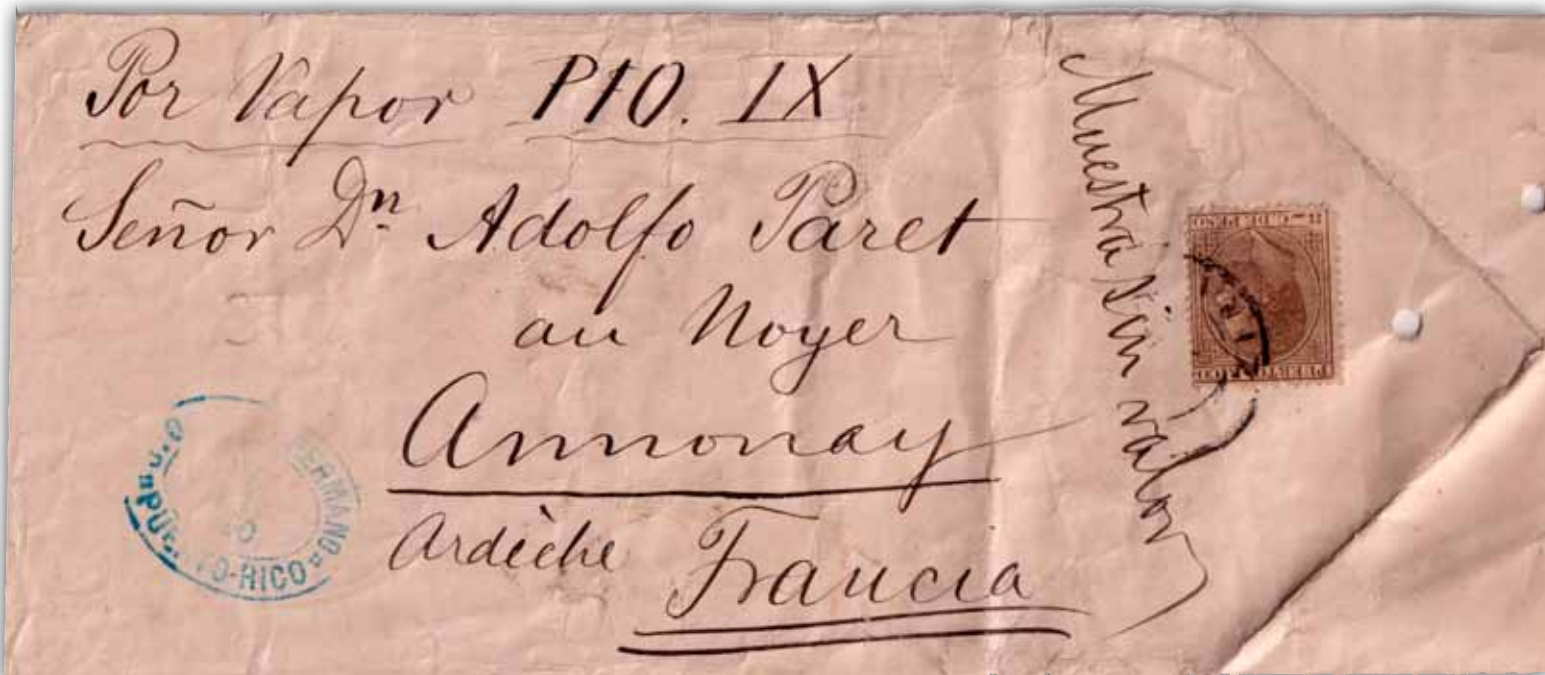 Por Vapor PIO. IX
Señor Dn Adolfo Paret
au Noyer
Annonay
Ardèche Francia
Muestra sin valor
-RICO